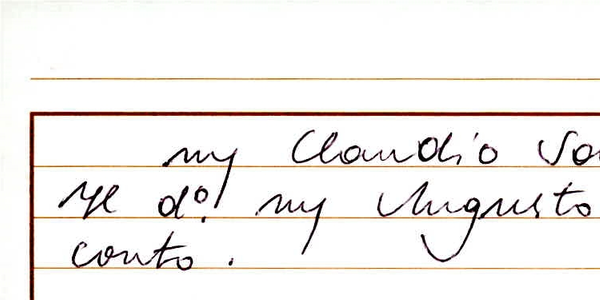 my Claudio
do. my Augusto
conto.